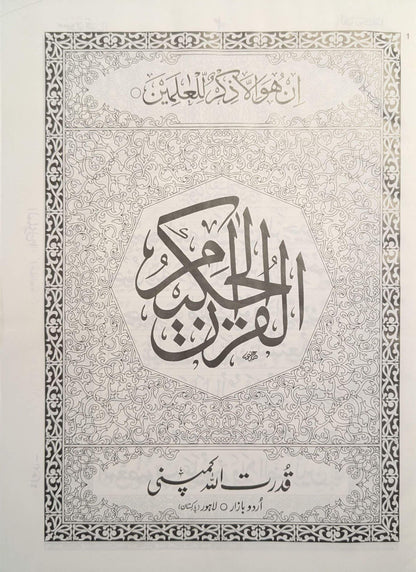 1
اِنْ هُوَ اِلَّا ذِكْرٌ لِّلْعٰلَمِيْنَ ○
القرآن الحكيم
قُدرت اللہ کمپنی
اُردو بازار ○ لاہور (پاکستان)